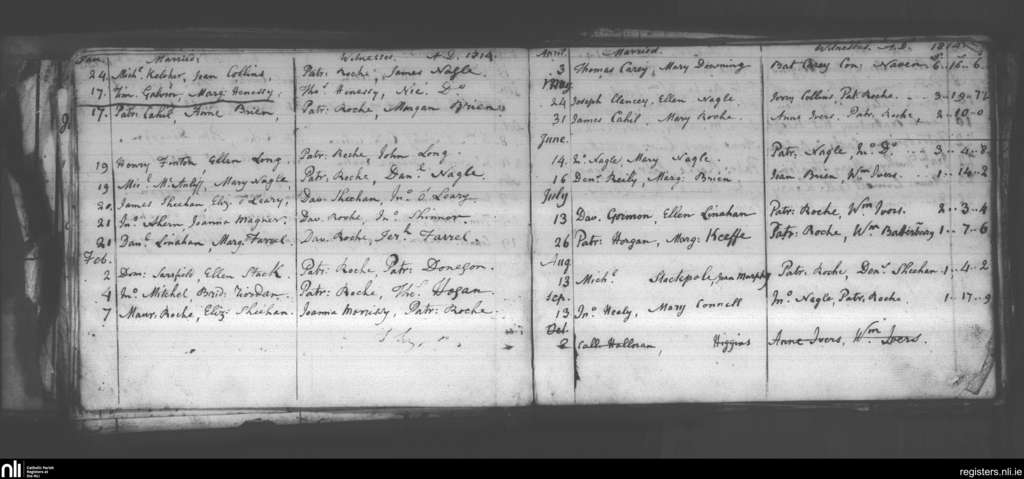 Jan. Married. Witnesses. A.D. 1814.
24. Mich.l Keloher, Joan Collins, Patr. Roche, James Nagle.
17. Tim. Galvin, Marg. Henessy. Tho.s Henessy, Nic. D.o
17. Patr. Cahil, Anne Brien, Patr. Roche, Morgan Brien
19 Honry Finton, Ellen Long. Patr. Roche, John Long.
19 Mic.l Mc.Auliff, Mary Nagle, Patr. Roche, Dan.l Nagle
20. James Sheehan, Eliz. O'Leary, Dav. Sheehan, Jn.o O'Leary.
21 Jn.o Ahern, Joanna Magner. Dav. Roche, Jn.o Skinner
21 Dan.l Linahan, Marg. Farrel. Dav. Roche, Jer.h Farrel.
Feb.
2 Dom: Sarsfield, Ellen Stack. Patr. Roche, Patr. Donegan.
4 Jn.o Mitchel, Brid. Riordan. Patr. Roche, Tho.s Hogan
7 Maur. Roche, Eliz. Sheehan. Joanna Morrissy, Patr. Roche.
April. Married. Witnesses. A.D. 1814
3 Thomas Carey, Mary Downing Bat Carey Con: 6..16..6
May
24 Joseph Clancey, Ellen Nagle Patr. Roche. 3..19..7½
31 James Cahil, Mary Roche. Anne Ivers, Patr. Roche, 2..10..0
June
14. Jn.o Nagle, Mary Nagle. Patr. Nagle, Jn.o D.o 3..4..8
16 Den.s Reily, Marg. Brien Joan Brien, Wm Ivers. 1..14..2
July
13 Dav. Gormon, Ellen Linahan Patr. Roche, Wm Ivers. 2..3..4
26 Patr. Horgan, Marg: Keeffe Patr. Roche, Wm Batterberry 1..7..6
Aug
13 Mich.l Stackpole, Joan Murphy Patr. Roche, Den.s Sheehan 1..4..2
Sep.
13 Jn.o Healy, Mary Connell Jn.o Nagle, Patr. Roche. 1..17..9
Oct
2 Call. Hallinan, Higgins Anne Ivers, Wm Ivers.
nli Catholic Parish Registers at the NLI
registers.nli.ie